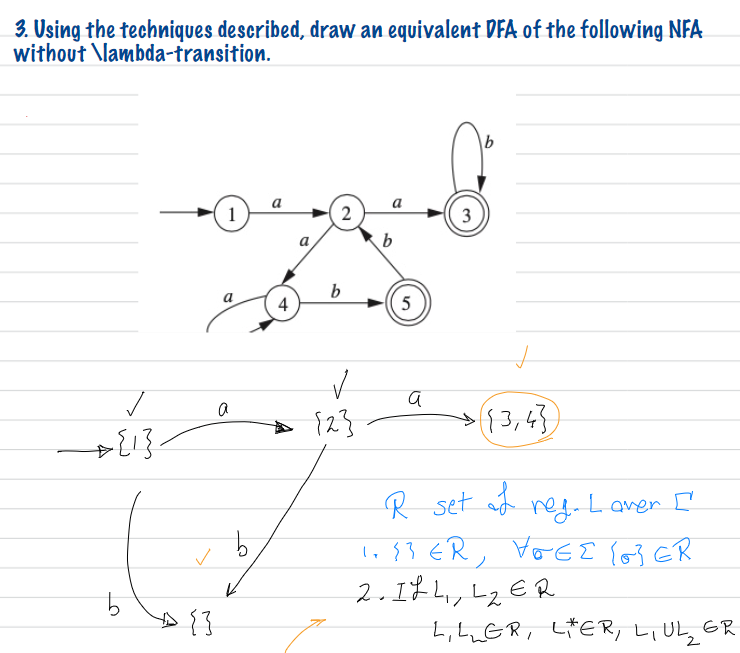 3. Using the techniques described, draw an equivalent DFA of the following NFA
without \lambda-transition.
b
a
a
1
2
3
a
b
a
b
4
5
a
a
{1}
{2}
{3,4}
R set of reg. L over Σ
b
1. {} ∈ R, ∀σ ∈ Σ {σ} ∈ R
2. If L₁, L₂ ∈ R
b
{}
L₁L₂ ∈ R, L₁* ∈ R, L₁ ∪ L₂ ∈ R